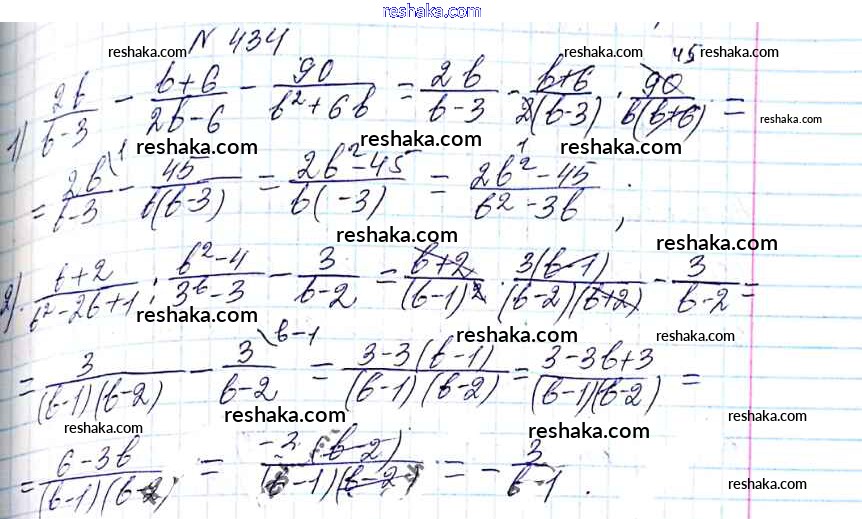 reshaka.com
N 434
reshaka.com reshaka.com 45
1) 2b/(b-3) - (b+6)/(2b-6) - 90/(b²+6b) = 2b/(b-3) - (b+6)/(2(b-3)) · 90/(b(b+6)) =
reshaka.com reshaka.com reshaka.com
= 2b/(b-3) \1 - 45/(b(b-3)) = (2b²-45)/(b( -3)) = (2b²-45)/(b²-3b) ;
reshaka.com reshaka.com
2) (b+2)/(b²-2b+1) : (b²-4)/(3b-3) - 3/(b-2) = (b+2)/(b-1)² · 3(b-1)/((b-2)(b+2)) - 3/(b-2) =
reshaka.com reshaka.com reshaka.com
= 3/((b-1)(b-2)) - 3/(b-2) \b-1 = (3-3(b-1))/((b-1)(b-2)) = (3-3b+3)/((b-1)(b-2)) =
reshaka.com reshaka.com reshaka.com
= (6-3b)/((b-1)(b-2)) = -3(b-2)/((b-1)(b-2)) = - 3/(b-1) .
reshaka.com reshaka.com reshaka.com